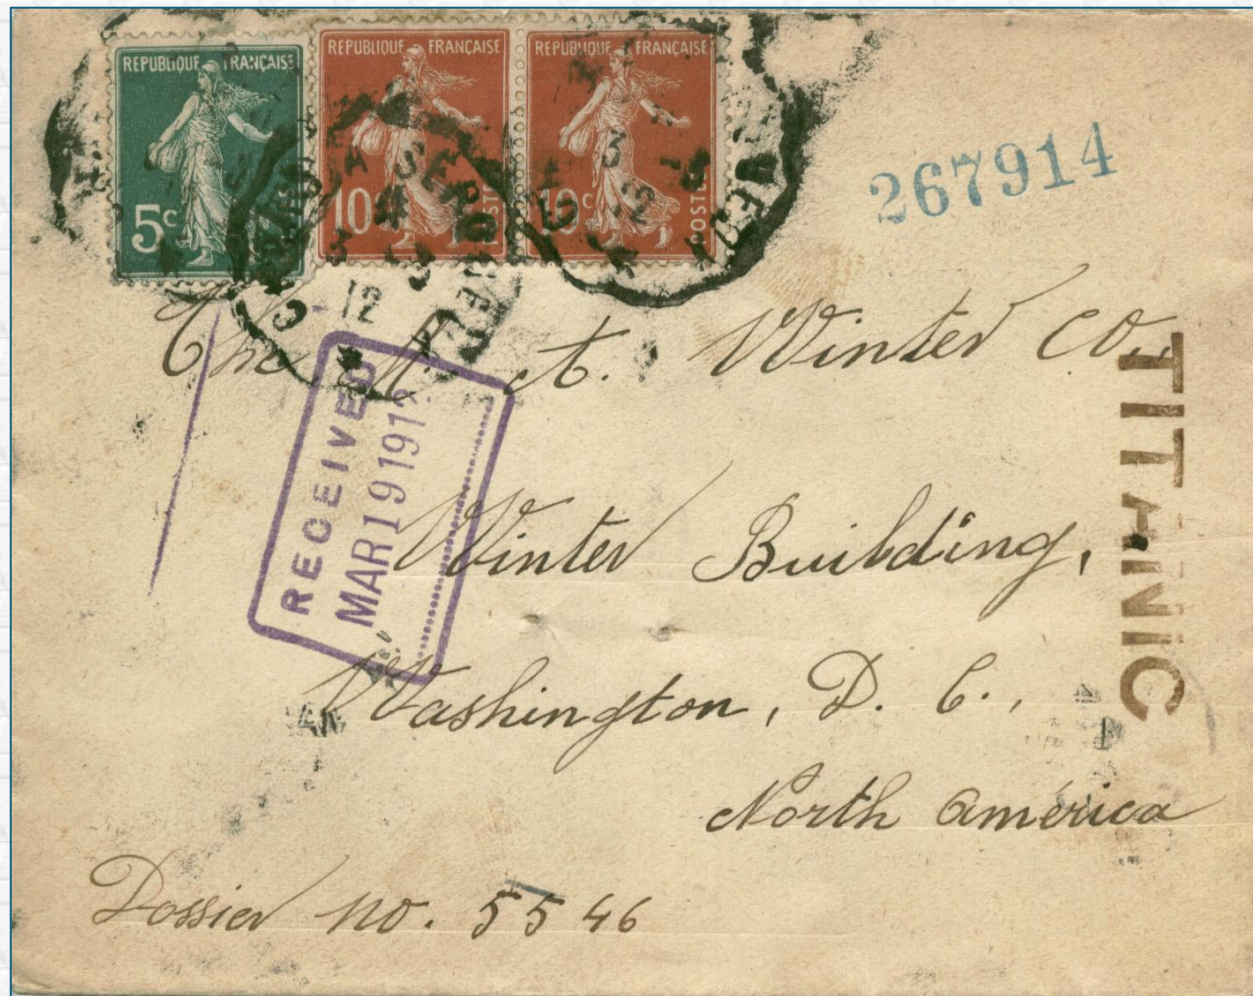 REPUBLIQUE FRANÇAISE
5c
REPUBLIQUE FRANÇAISE
10c
POSTES
REPUBLIQUE FRANÇAISE
10c
POSTES
3
12
3
12
267914
The A. Winter Co.,
RECEIVED
MAR 19 191
TITANIC
Winter Building,
Washington, D. C.,
North América
Dossier no. 5546